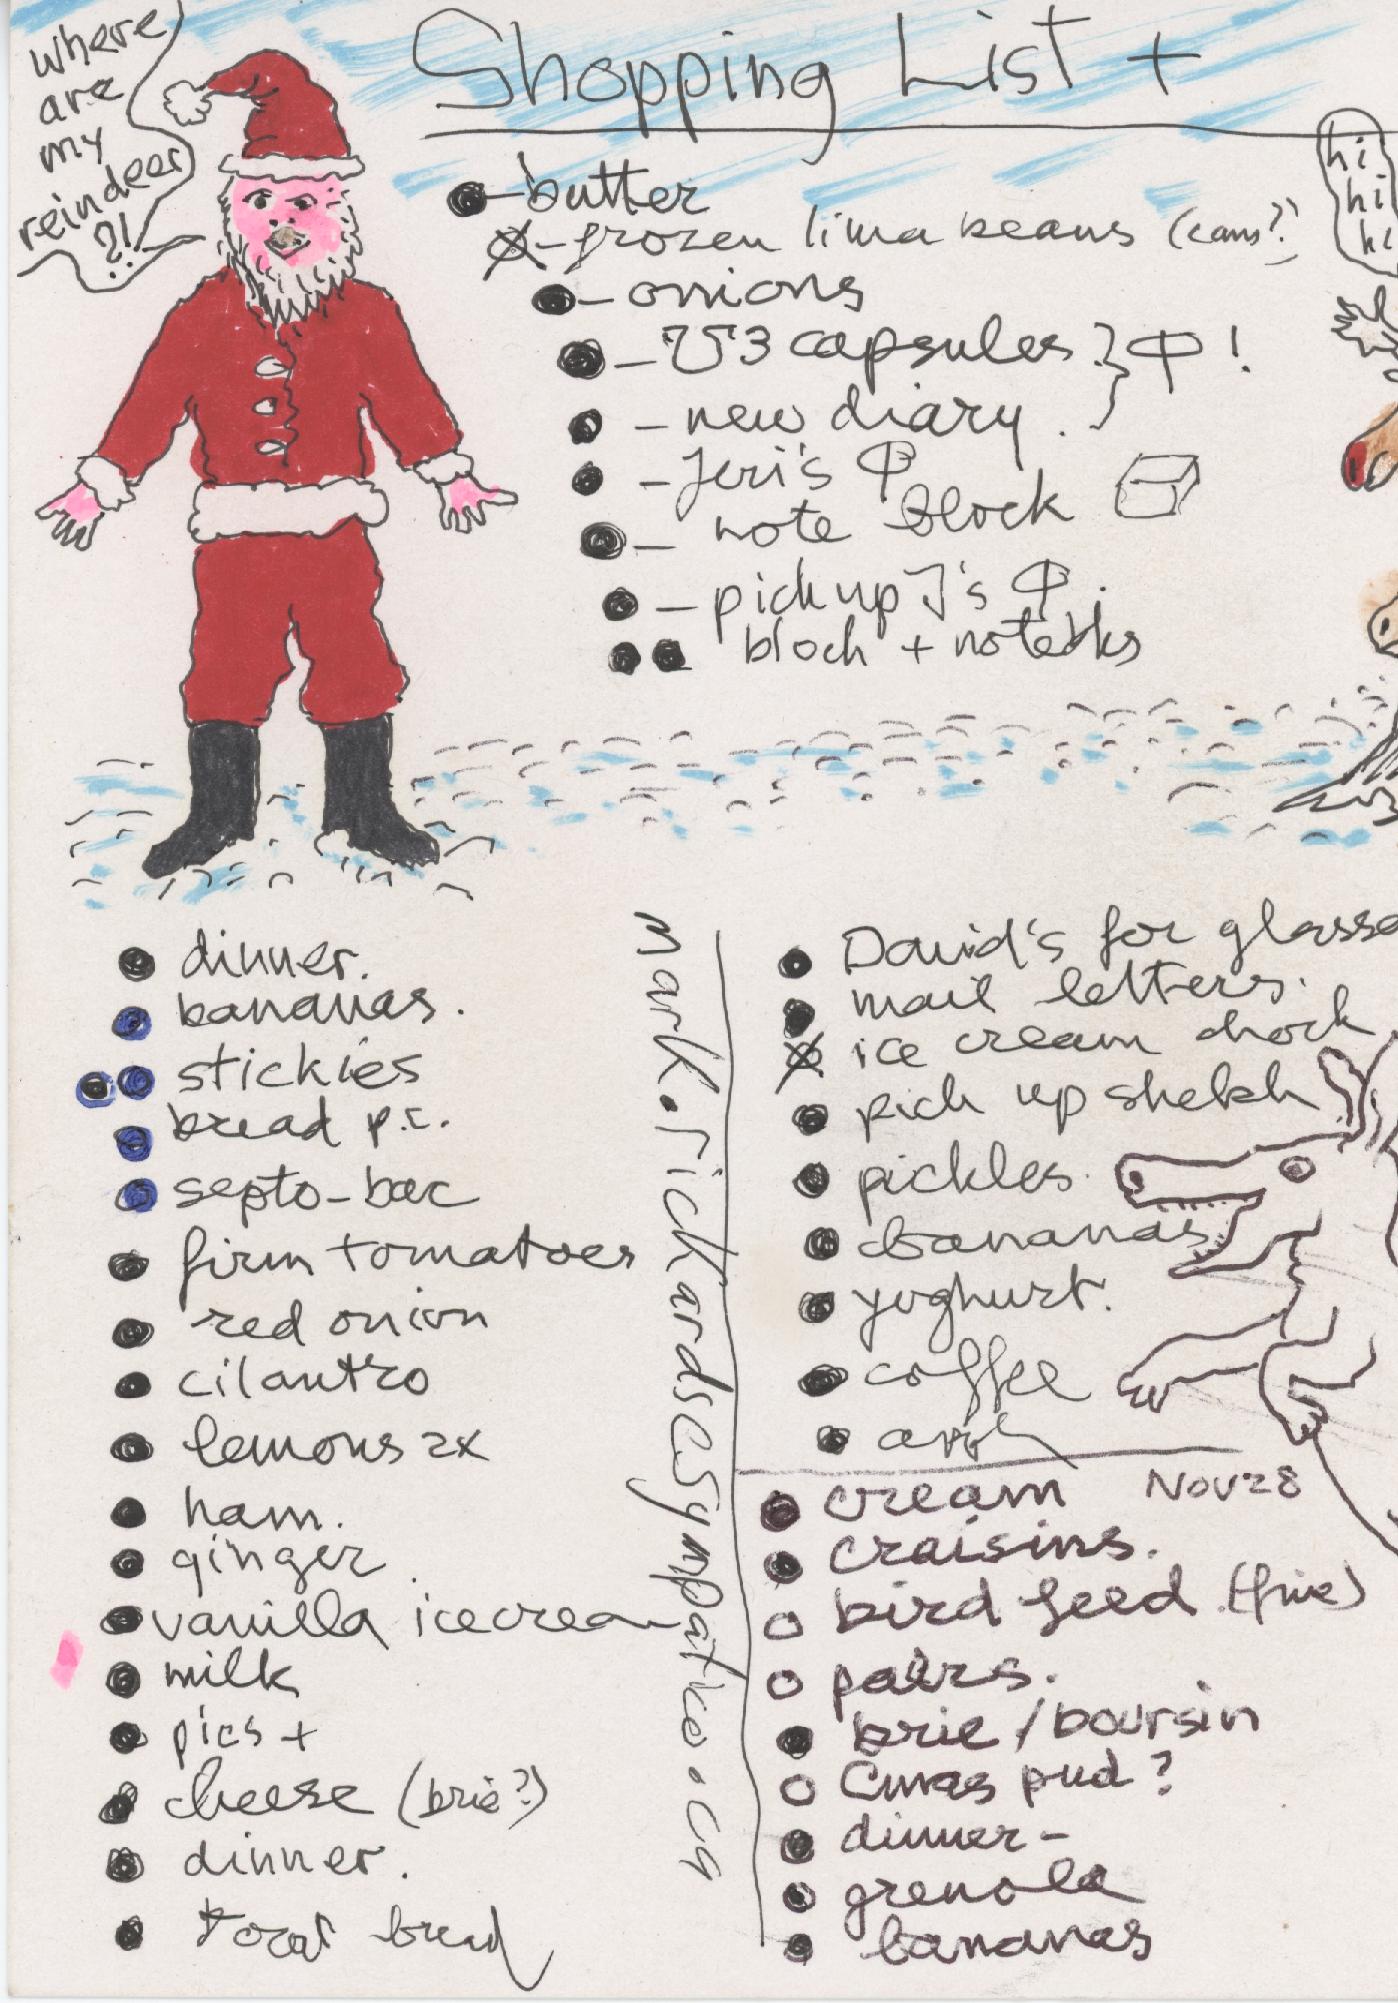 where
are
my
reindeer
?!
Shopping List +
hi
hi
hi
butter
frozen lima beans (cans?)
onions
capsules } !
new diary.
Jeri's
note block
pick up J's
block + notebks
dinner.
bananas.
stickies
bread p.c.
septo-bac
firm tomatoes
red onion
cilantro
lemons 2x
ham.
ginger
vanilla icecream
milk
pics +
cheese (brie?)
dinner.
bread
mark.rickards@sympatico.ca
David's for glasse
mail letters.
ice cream
pick up
pickles.
bananas
yoghurt.
coffee
cream Nov 28
craisins.
bird feed
pairs.
brie / boursin
Cmas pud?
dinner-
grenola
bananas